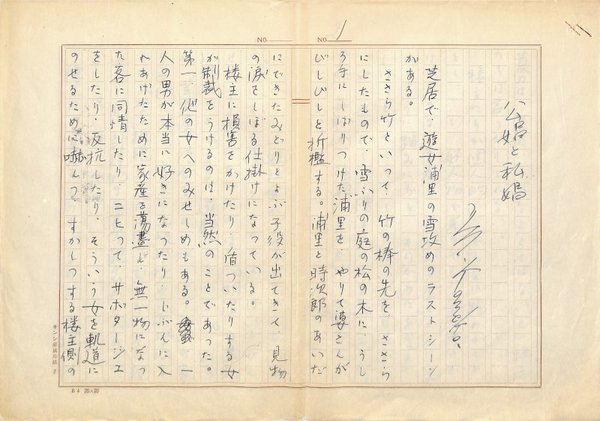 NO. 1
NO.
公娼と私娼
芝居で、遊女浦里の雪攻めのラストシーン
がある。
ささら竹といって、竹の棒の先を、ささら
にしたもので、雪ふりの庭の松の木に、うし
ろ手にしばりつけた浦里を、やりて婆さんが
びしびしと折檻する。浦里と時次郎のあいだ
にできたみどりとよぶ子役が出てきて、見物
の涙をしぼる仕掛けになっている。
楼主に損害をかけたり、盾ついたりする女
が制裁をうけるのは、当然のことであった。
第一、他の女へのみせしめもある。一
人の男が本当に好きになったり、じぶんに入
れあげたために家産を蕩盡し、無一物になっ
た客に同情したり、ニヒって、サボタージュ
をしたり、反抗したり、そういう女を軌道に
のせるために嚇しつ、すかしつする楼主側の